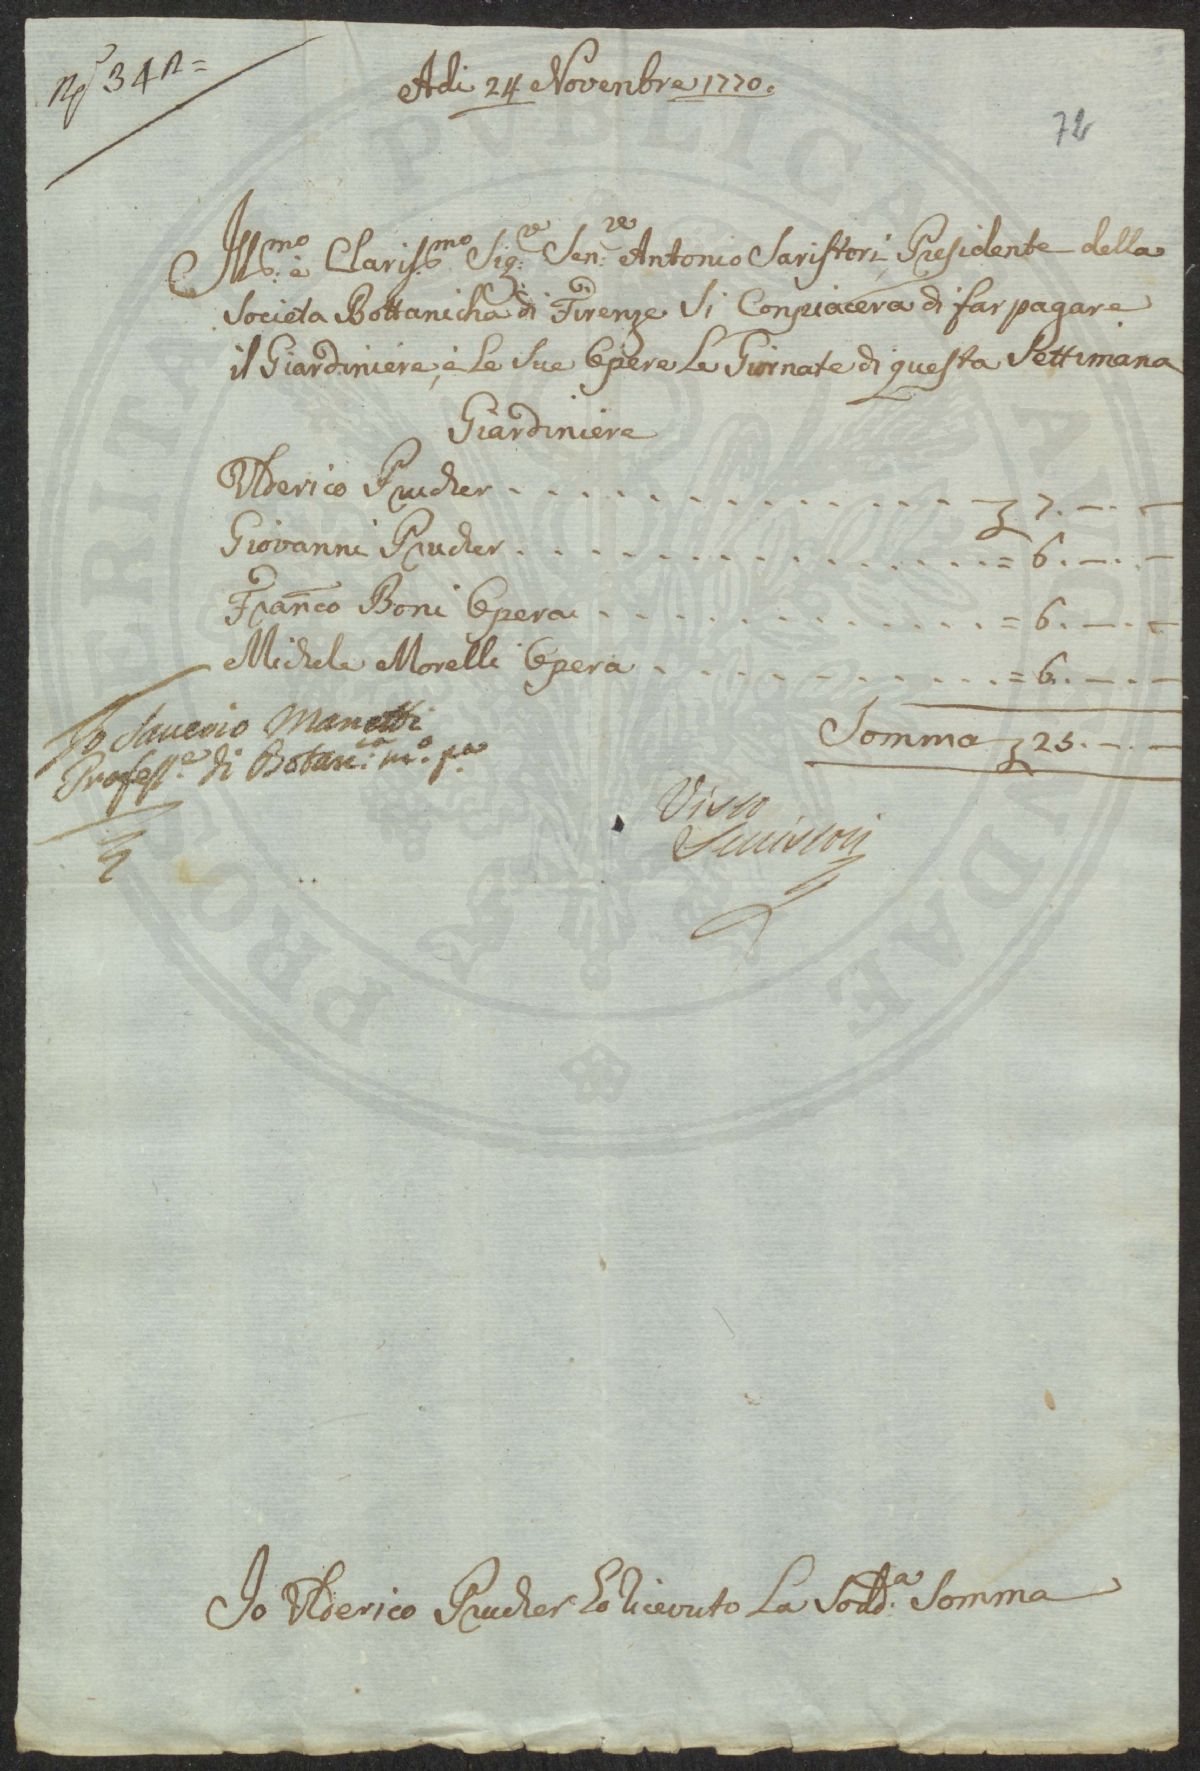 Adi 24 Novenbre 1770.
72
Ill.mo è Claris.mo Sig.re Sen.re Antonio Saristori, Presidente della
Societa Bottanicha di Firenze Si Conpiacera di far pagare
il Giardiniere, è Le Sue Opere Le Giornate di questa Settimana
Giardiniere
Ulderico Prucher 7.—.—
Giovanni Prucher = 6.—.—
Fran̄co Boni Opera = 6.—.—
Michele Morelli Opera = 6.—.—
Somma 25.—.—
Io Saverio Manetti
Profess.e di Botan.ca m.o p.a
Visto
Serristori
Io Ulderico Prucher ho Ricevuto La Sodd.a Somma
PROSPERITATI PUBLICAE AUGENDAE